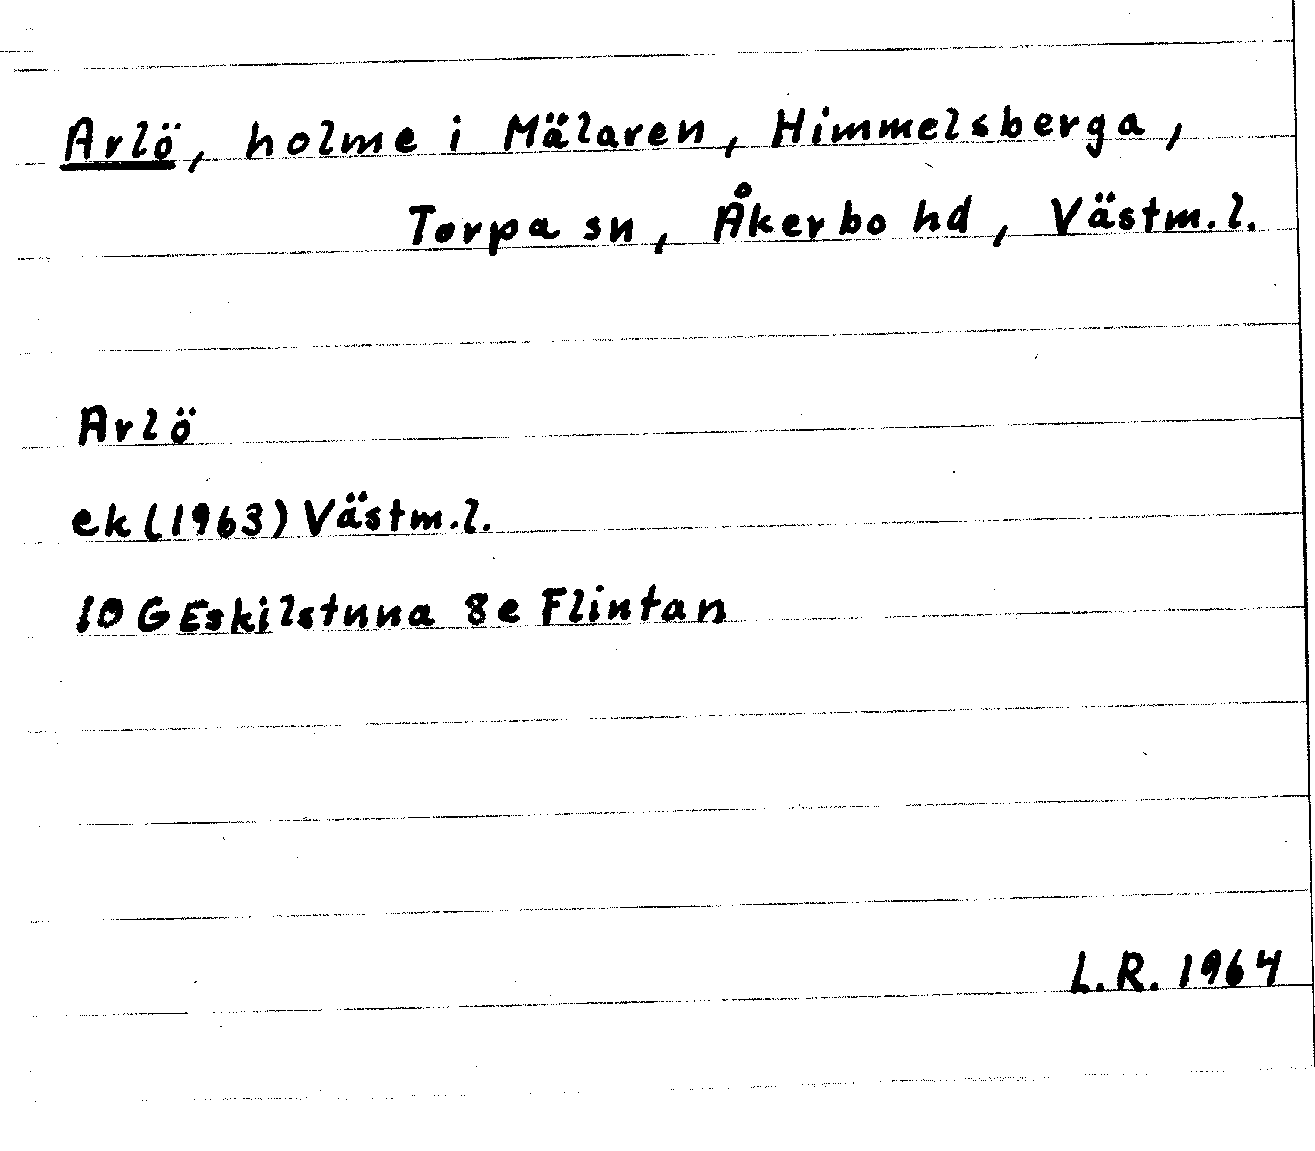 Arlö, holme i Mälaren, Himmelsberga,
Torpa sn, Åkerbo hd, Västm.l.
Arlö
ek (1963) Västm.l.
10 G Eskilstuna 8e Flintan
L.R. 1964